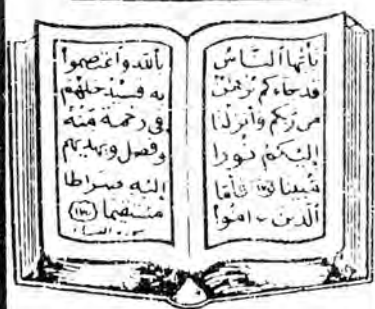 يَٰأَيُّهَا ٱلنَّاسُ
قَدْ جَاءَكُم بُرْهَٰنٌ
مِن رَّبِّكُمْ وَأَنزَلْنَا
إِلَيْكُمْ نُورًا
مُّبِينًا (١٧٤) فَأَمَّا
ٱلَّذِينَ ءَامَنُوا
بِٱللَّهِ وَٱعْتَصَمُوا
بِهِ فَسَيُدْخِلُهُمْ
فِي رَحْمَةٍ مِّنْهُ
وَفَضْلٍ وَيَهْدِيهِمْ
إِلَيْهِ صِرَٰطًا
مُّسْتَقِيمًا (١٧٥)
سورة النساء